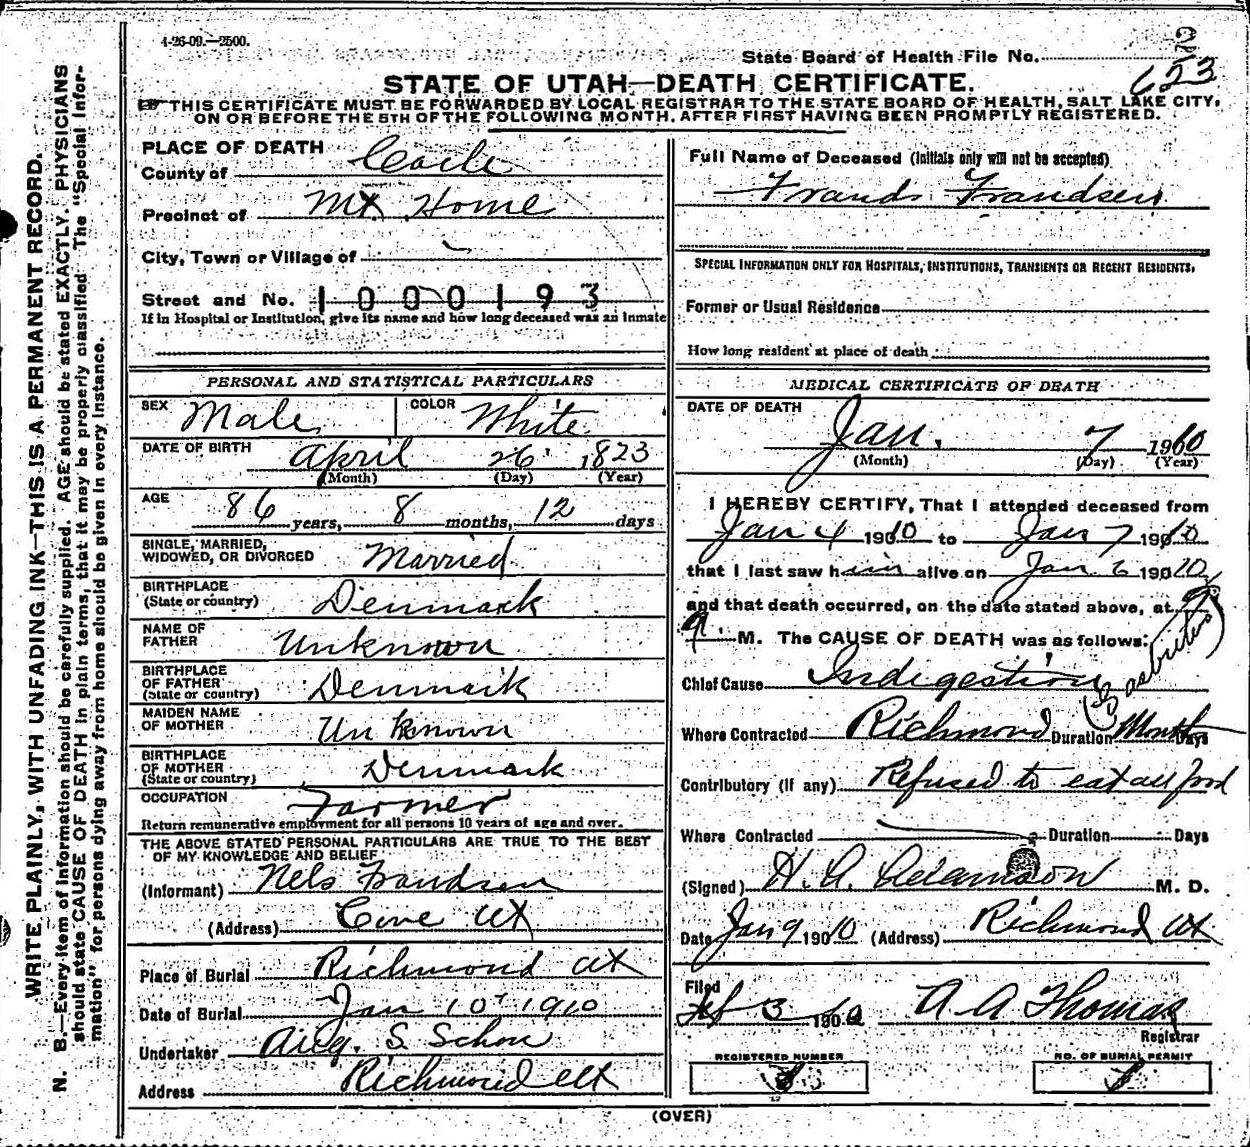 4-26-09.—2500.
2
State Board of Health File No.
653
STATE OF UTAH—DEATH CERTIFICATE.
THIS CERTIFICATE MUST BE FORWARDED BY LOCAL REGISTRAR TO THE STATE BOARD OF HEALTH, SALT LAKE CITY,
ON OR BEFORE THE 5TH OF THE FOLLOWING MONTH, AFTER FIRST HAVING BEEN PROMPTLY REGISTERED.
WRITE PLAINLY, WITH UNFADING INK—THIS IS A PERMANENT RECORD.
N. B.—Every item of information should be carefully supplied. AGE should be stated EXACTLY. PHYSICIANS
should state CAUSE OF DEATH in plain terms, that it may be properly classified. The "Special Infor-
mation" for persons dying away from home should be given in every instance.
PLACE OF DEATH
County of Cache
Precinct of Mt Home
City, Town or Village of
Street and No. 1000193
If in Hospital or Institution, give its name and how long deceased was an inmate
PERSONAL AND STATISTICAL PARTICULARS
SEX Male COLOR White
DATE OF BIRTH April 26 1823
(Month) (Day) (Year)
AGE 86 years, 8 months, 12 days
SINGLE, MARRIED,
WIDOWED, OR DIVORCED Married
BIRTHPLACE
(State or country) Denmark
NAME OF
FATHER Unknown
BIRTHPLACE
OF FATHER
(State or country) Denmark
MAIDEN NAME
OF MOTHER Unknown
BIRTHPLACE
OF MOTHER
(State or country) Denmark
OCCUPATION Farmer
Return remunerative employment for all persons 10 years of age and over.
THE ABOVE STATED PERSONAL PARTICULARS ARE TRUE TO THE BEST
OF MY KNOWLEDGE AND BELIEF
(Informant) Nels Frandsen
(Address) Cove Ut
Place of Burial Richmond Ut
Date of Burial Jan 10 1910
Undertaker Aug. S Schow
Address Richmond Ut
Full Name of Deceased (Initials only will not be accepted)
Frands Frandsen
SPECIAL INFORMATION ONLY FOR HOSPITALS, INSTITUTIONS, TRANSIENTS OR RECENT RESIDENTS.
Former or Usual Residence
How long resident at place of death
MEDICAL CERTIFICATE OF DEATH
DATE OF DEATH
Jan. 7 1910
(Month) (Day) (Year)
I HEREBY CERTIFY, That I attended deceased from
Jan 4 1910 to Jan 7 1910
that I last saw him alive on Jan 6 1910
and that death occurred, on the date stated above, at 9
a. M. The CAUSE OF DEATH was as follows:
Chief Cause Indigestion
(Gastritis)
Where Contracted Richmond Duration Months Days
Contributory (if any) Refused to eat all food
Where Contracted Duration Days
(Signed) H. A. Adamson M. D.
Date Jan 9 1910 (Address) Richmond Ut
Filed
Feb 3 1910 A A Thomas
Registrar
REGISTERED NUMBER NO. OF BURIAL PERMIT
(OVER)